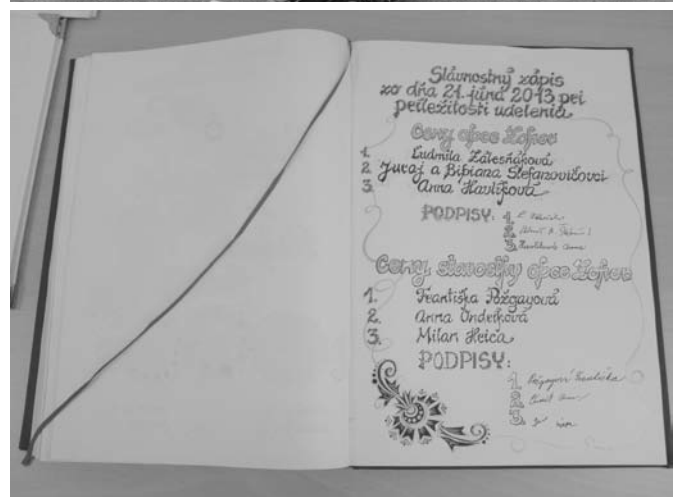 Slávnostný zápis
zo dňa 21. júna 2013 pri
príležitosti udelenia
Ceny obce
1. Ľudmila Zálesňáková
2. Juraj a Bibiana Štefanovičovci
3. Anna Havlíková
PODPISY: 1.
2.
3. Havlíková Anna
Ceny starostky obce
1. Františka Požgayová
2. Anna Ondejková
3. Milan Heiča
PODPISY:
1. Požgayová Františka
2.
3.